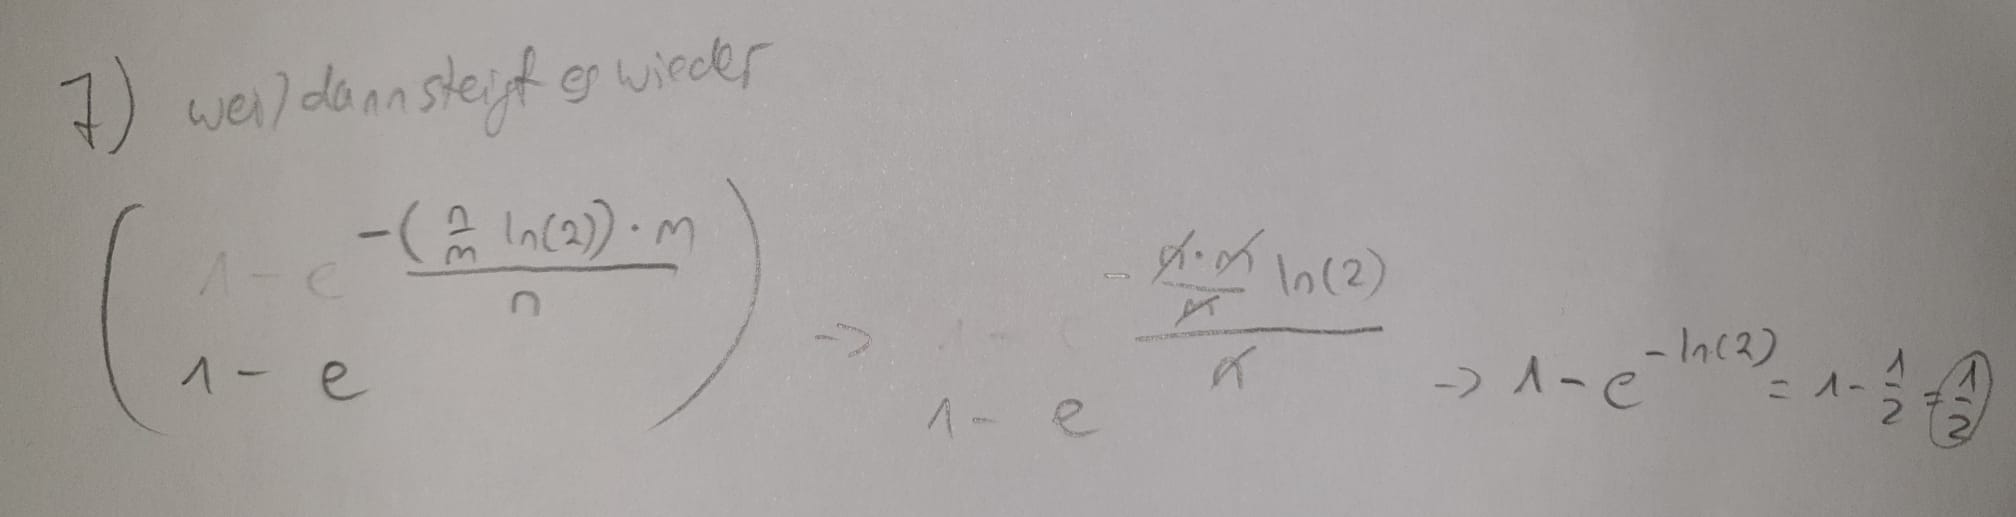 7) weil dann steigt es wieder
(1 - e^(-((n/m ln(2)) · m)/n)) -> 1 - e^(-((n·m)/m ln(2))/n) -> 1 - e^(-ln(2)) = 1 - 1/2 = 1/2